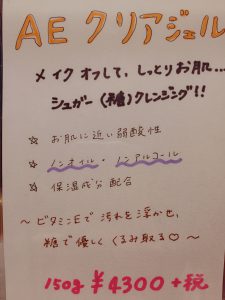 AE クリアジェル
メイクオフして、しっとりお肌...
シュガー(糖)クレンジング!!
☆ お肌に近い弱酸性
☆ ノンオイル・ノンアルコール
☆ 保湿成分配合
〜ビタミンEで汚れを浮かせ、
糖で優しくくるみ取る♡〜
150g ¥4300+税